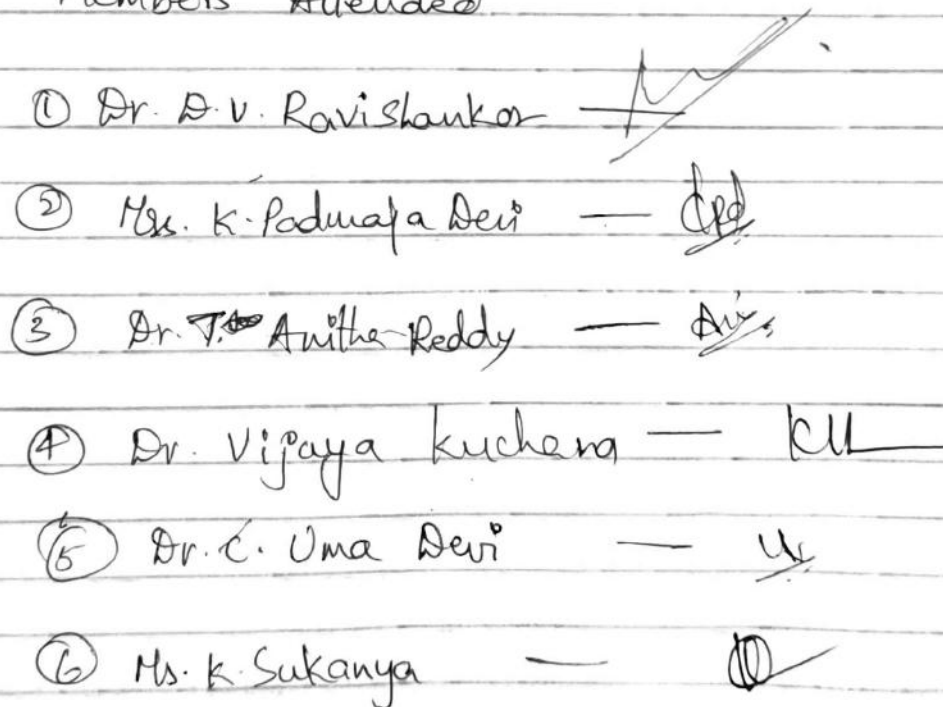 Members Attended
① Dr. D.V. Ravishankar —
② Mrs. K. Padmaja Devi —
③ Dr. T. Anitha Reddy —
④ Dr. Vijaya Kuchana —
⑤ Dr. C. Uma Devi —
⑥ Ms. K. Sukanya —